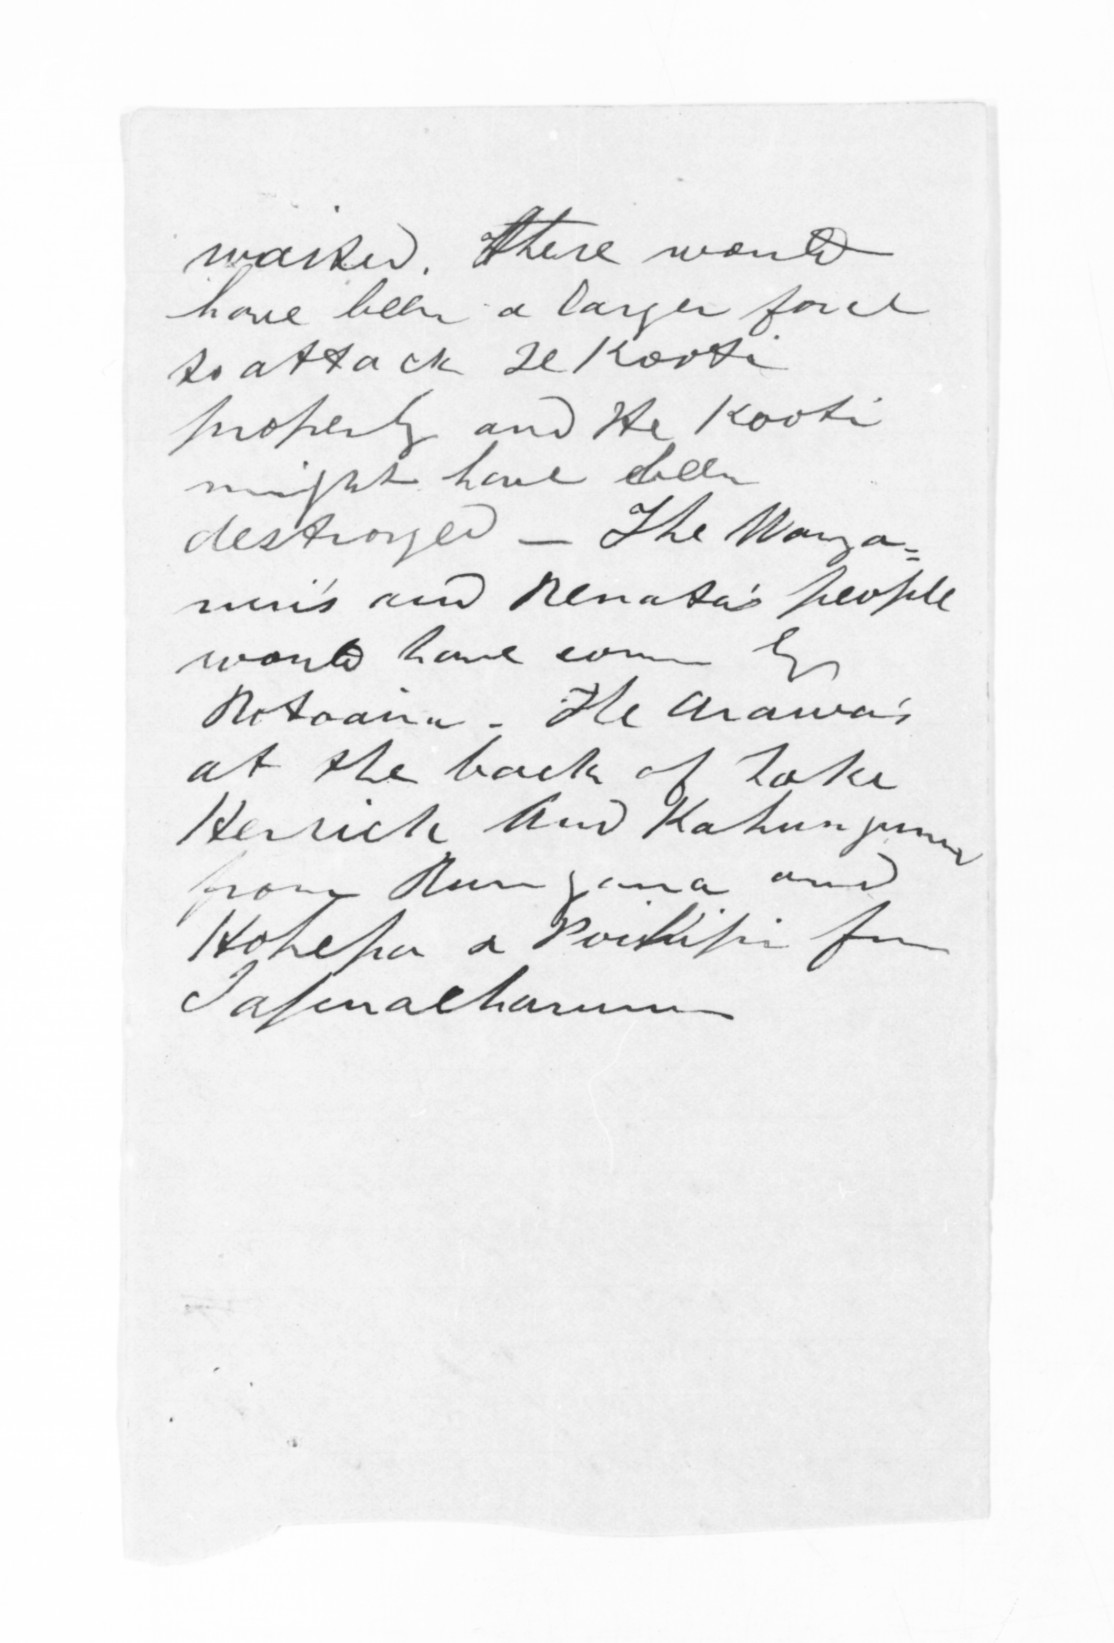 waited. There would
have been a larger force
to attack Te Kooti
properly and Te Kooti
might have been
destroyed — The Wanga=
nui's and Renata's people
would have come by
Rotoaira - The Arawa's
at the back of Lake
Herrick and Kahungunu
from Runganga and
Hohepa & Poihipi from
Tapuaeharuru